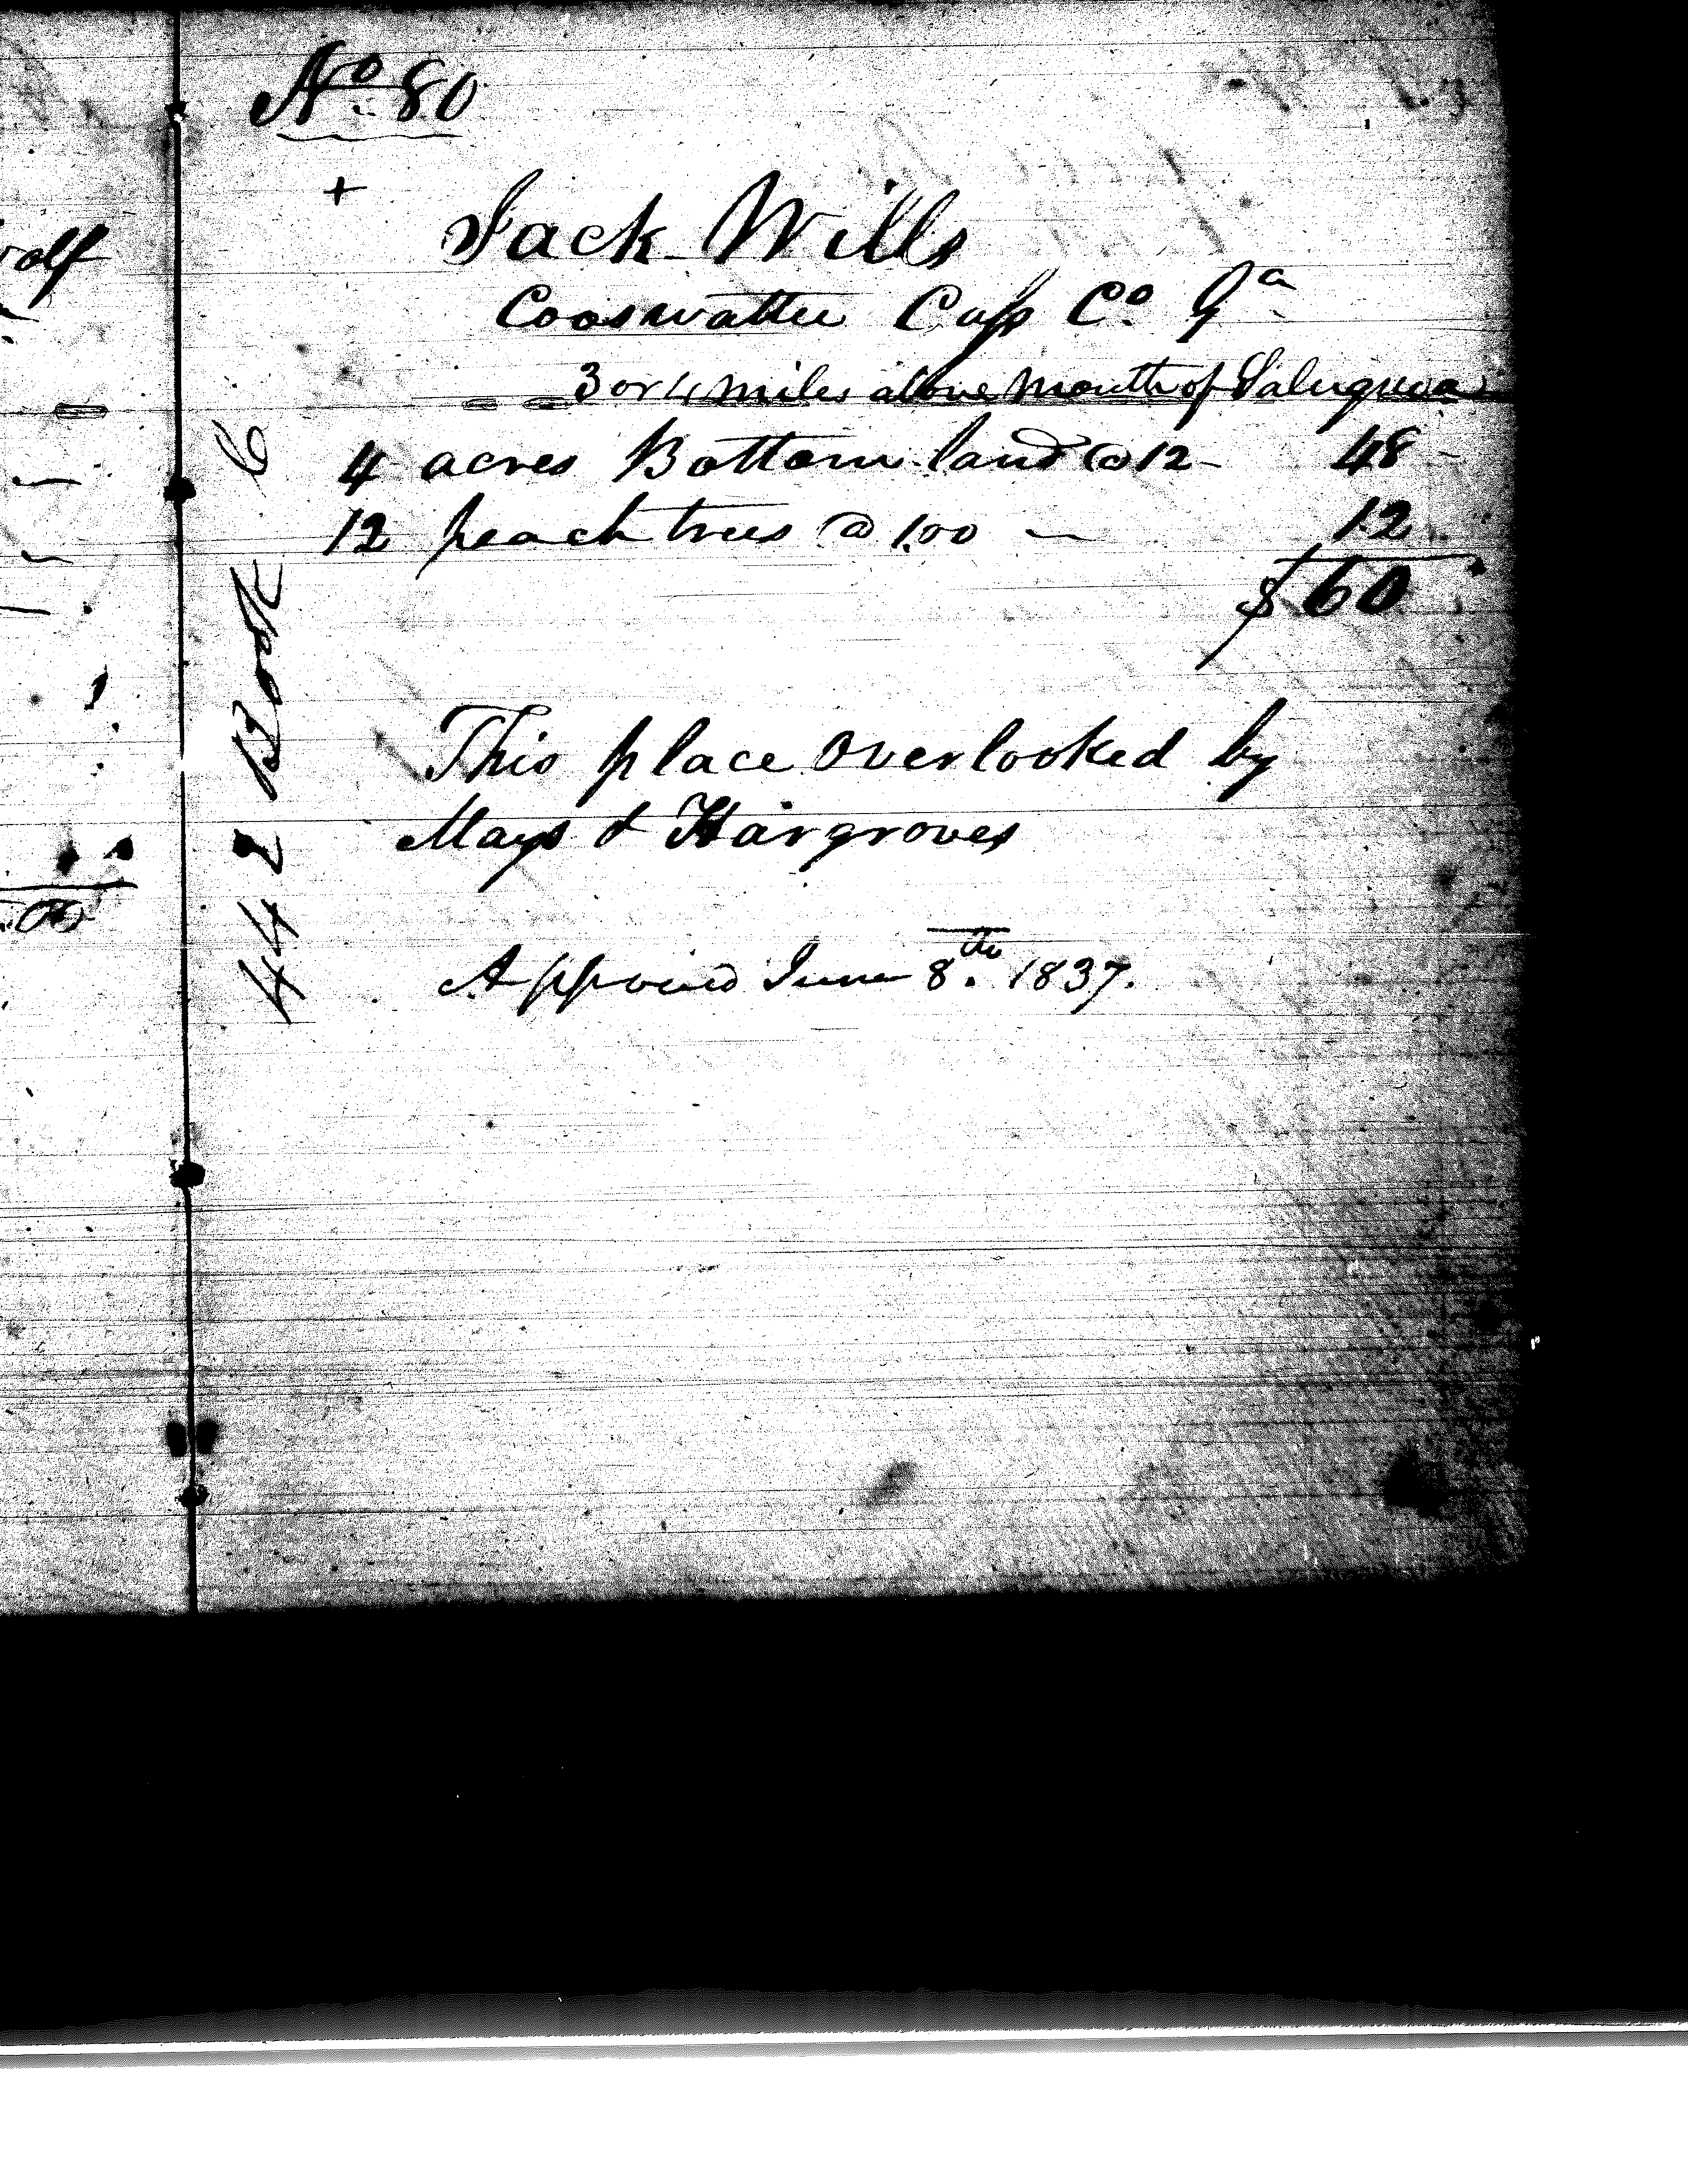 No. 80
+
Jack Wills
Cooswattee Cass Co. Ga
3 or 4 miles above mouth of Salequoa
4 acres Bottom land @ 12 - 48 -
12 peach trees @ 1.00 - 12
$ 60
This place overlooked by
Mays & Hargroves
Approved June 8th. 1837.
442 Book 6